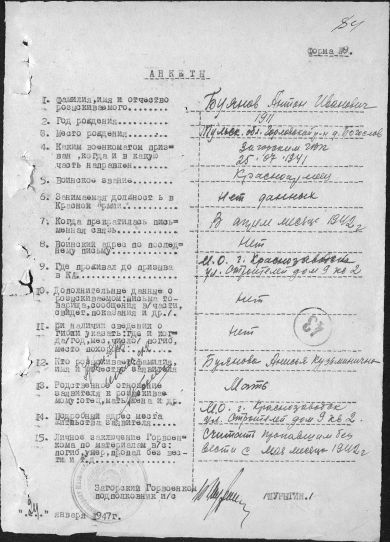 Форма №9.
АНКЕТЫ
1. Фамилия, имя и отчество розыскиваемого........ Буянов Антон Иванович
2. Год рождения........ 1911
3. Место рождения........ Тульск. обл. р-н д.
4. Каким военкоматом призван, когда и в какую часть направлен. Загорским ГВК
25.07.1941
5. Воинское звание........ Красноармеец
6. Занимаемая должность в Красной Армии........ Нет данных
7. Когда прекратилась письменная связь........ В апреле месяце 1942 г
8. Воинский адрес по последнему письму........ Нет
9. Где проживал до призыва в КА........ М.О. г. Краснозаводск
ул. Строителей дом 9 кв 2
10. Дополнительные данные о розыскиваемом: письма товарища, сообщения в/части, свидет. показания и др./. Нет
11. При наличии сведений о гибели указать: где и когда/год, мес. число/ погиб, место похорон........ Нет
12. Кто розыскивает/фамилия, имя и отчество заявителя Буянова Анисья Кузьминична
13. Родственное отношение заявителя к розыскиваемому: отец, мать, жена и др. Мать
14. Подробный адрес места жительства заявителя.. М.О. г. Краснозаводск
ул. Строителей дом 9 кв 2
15. Личное заключение Горвоенкома по материалам в/с: погиб, умер, пропал без вести и т.д. Считать пропавшим без
вести с мая месяца 1942 г
43
Загорский Горвоенком
подполковник и/с /ШУРЫГИН./
"24" января 1947г.